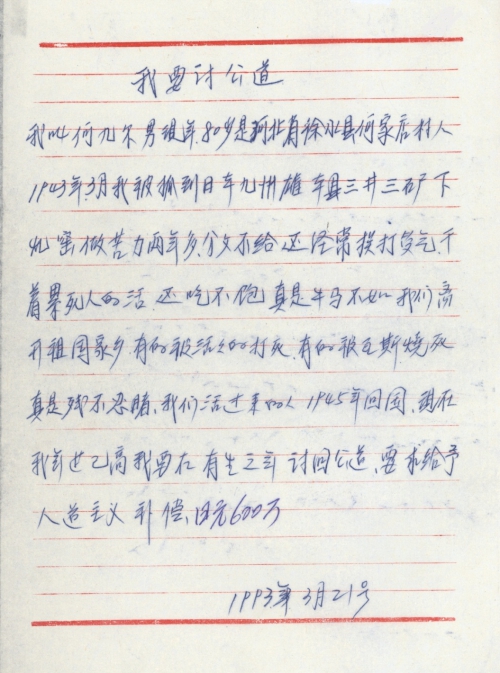 我要讨公道
我叫何九尔男现年80岁是河北省徐水县何家店村人
1943年3月我被抓到日本九州雄本县三井三矿下
煤窑做苦力两年多,分文不给还经常挨打受气,干
着累死人的活,还吃不饱真是牛马不如我们离
开祖国家乡有的被活活的打死,有的被瓦斯烧死
真是残不忍睹,我们活过来的人1945年回国,现在
我年过已高我要在有生之年讨回公道,要求给予
人道主义补偿,日元600万
1993年3月21号